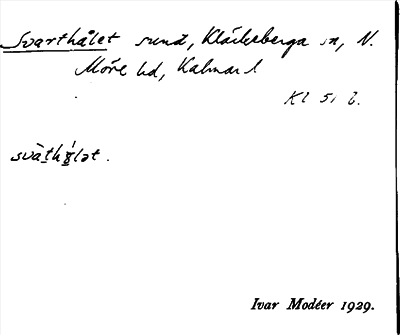 Svarthålet sund, Kläckeberga sn, N.
Möre hd, Kalmar l
Kl 51 b.
svàthə́lət.
Ivar Modéer 1929.